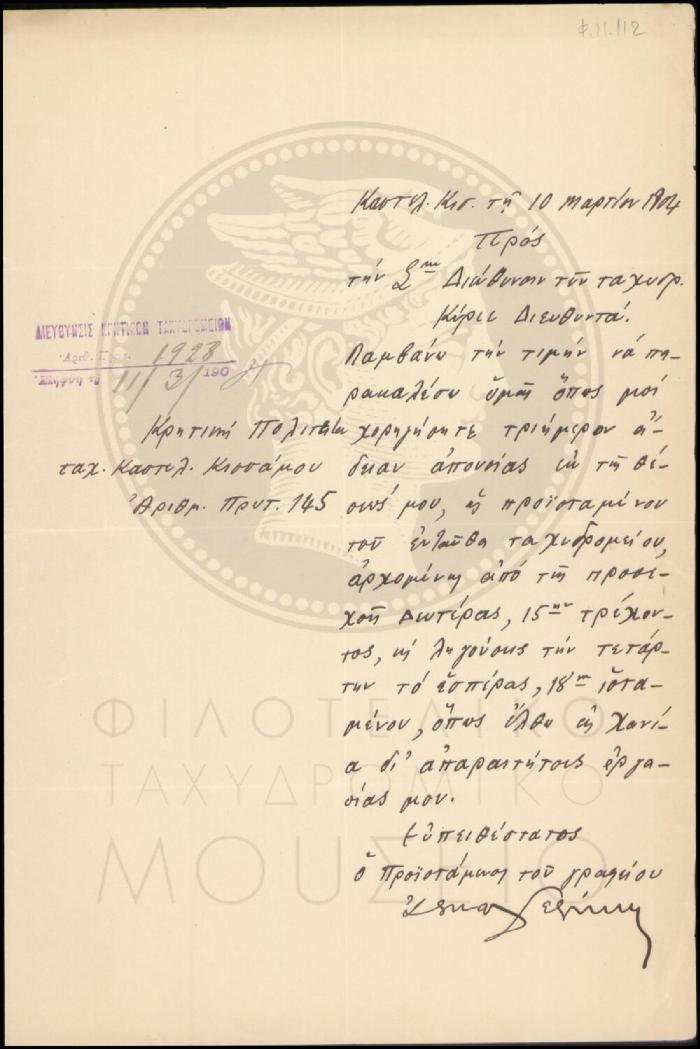 Φ.11.112
Καστελ. Κισ. τῇ 10 Μαρτίου 1904
Πρὸς
τὴν Σ. Διεύθυνσιν τῶν ταχυδρ.
Κύριε Διευθυντά.
ΔΙΕΥΘΥΝΣΙΣ ΚΡΗΤΙΚΩΝ ΤΑΧΥΔΡΟΜΕΙΩΝ
Ἀριθ. Πρωτ. 1923
Ἐλήφθη τῇ 11/3/1904
Κρητικὴ Πολιτεία
ταχ. Καστελ. Κισσάμου
Ἀριθμ. Πρωτ. 145
Λαμβάνω τὴν τιμὴν νὰ πα-
ρακαλέσω ὑμᾶς ὅπως μοὶ
χορηγήσητε τριήμερον ἄ-
δειαν ἀπουσίας ἐκ τῆς θέ-
σεώς μου, ὡς προϊσταμένου
τοῦ ἐνταῦθα ταχυδρομείου,
ἀρχομένην ἀπὸ τῆς προσε-
χοῦς Δευτέρας, 15ην τρέχον-
τος, κὶ ληγούσης τὴν τετάρ-
την τὸ ἑσπέρας, 18ην ἱστα-
μένου, ὅπως ἔλθω εἰς Χανί-
α δι' ἀπαραιτήτους ἐργα-
σίας μου.
Εὐπειθέστατος
ὁ Προϊστάμενος τοῦ γραφείου
ΦΙΛΟΤΕΛΙΚΟ
ΤΑΧΥΔΡΟΜΙΚΟ
ΜΟΥΣΕΙΟ